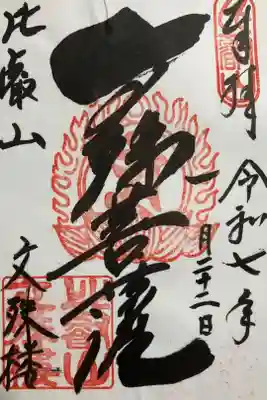 奉拝
令和七年
一月二十二日
文殊菩薩
比叡山
文殊楼